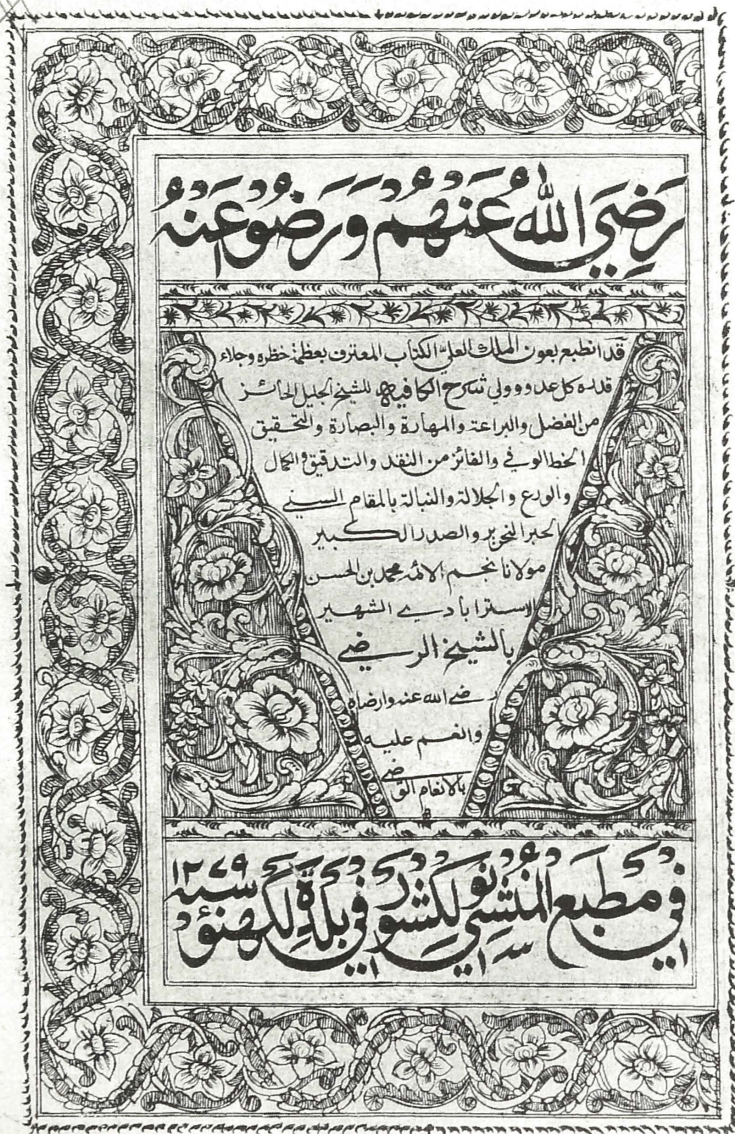 رَضِيَ اللهُ عَنْهُمْ وَرَضُوْعَنْهُ
قد انطبع بعون الملك العليّ الكتاب المعترف بعظمة خطره وجلاء
قدره كل عدو وولي شرح الكافيه للشيخ الجليل الحائز
من الفضل والبراعة والمهارة والبصارة والتحقيق
الخط الوفي والفائز من النقد والتدقيق والكمال
والورع والجلالة والنبالة بالمقام السني
الحبر النحرير والصدر الكبير
مولانا نجم الائمه محمد بن الحسن
الاسترابادي الشهير
بالشيخ الرضي
رضي الله عنه وارضاه
وانعم عليه
بالانعام
في مطبع المنشي نولكشور في بلدة لكهنؤ سنه ١٢٧٩